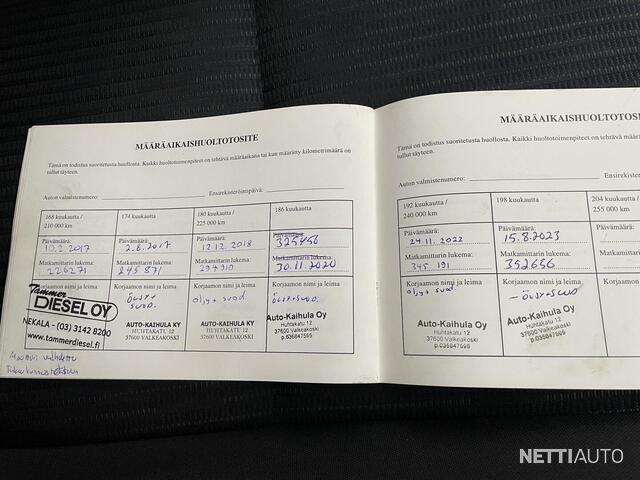 MÄÄRÄAIKAISHUOLTOTOSITE
Tämä on todistus suoritetusta huollosta. Kaikki huoltotoimenpiteet on tehtävä määräaikana tai kun määrätty kilometrimäärä on
tullut täyteen.
Auton valmistenumero: Ensirekisteröintipäivä:
168 kuukautta /
210 000 km
Päivämäärä:
10.2.2017
Matkamittarin lukema:
226271
Korjaamon nimi ja leima:
Tammer
DIESEL OY
NEKALA - (03) 3142 8200
www.tammerdiesel.fi
Moottori vaihdettu
174 kuukautta
Päivämäärä:
2.8.2017
Matkamittarin lukema:
245 871
Korjaamon nimi ja leima:
öljy+
suod.
AUTO-KAIHULA KY
HUHTAKATU 12
37600 VALKEAKOSKI
180 kuukautta /
225 000 km
Päivämäärä:
12.12.2018
Matkamittarin lukema:
294910
Korjaamon nimi ja leima:
öljy+ suod.
AUTO-KAIHULA KY
HUHTAKATU 12
37600 VALKEAKOSKI
186 kuukautta
Päivämäärä:
325456
Matkamittarin lukema:
30.11.2020
Korjaamon nimi ja leima:
öljy+suod.
Auto-Kaihula Oy
Huhtakatu 12
37600 Valkeakoski
p.035847595
MÄÄRÄAIKAISHUOLTOTOSI
Tämä on todistus suoritetusta huollosta. Kaikki huoltotoimenpiteet on tehtävä määrä
tullut täyteen.
Auton valmistenumero: Ensirekister
192 kuukautta /
240 000 km
Päivämäärä:
24.11.2022
Matkamittarin lukema:
345 191
Korjaamon nimi ja leima:
öljy+ suod.
Auto-Kaihula Oy
Huhtakatu 12
37600 Valkeakoski
p.035847595
198 kuukautta
Päivämäärä:
15.8.2023
Matkamittarin lukema:
352656
Korjaamon nimi ja leima:
- öljy+suod
Auto-Kaihula Oy
Huhtakatu 12
37600 Valkeakoski
p.035847595
204 kuukau
255 000 km
Päivämäärä:
Matkamittar
Korjaamon n
NETTIAUTO